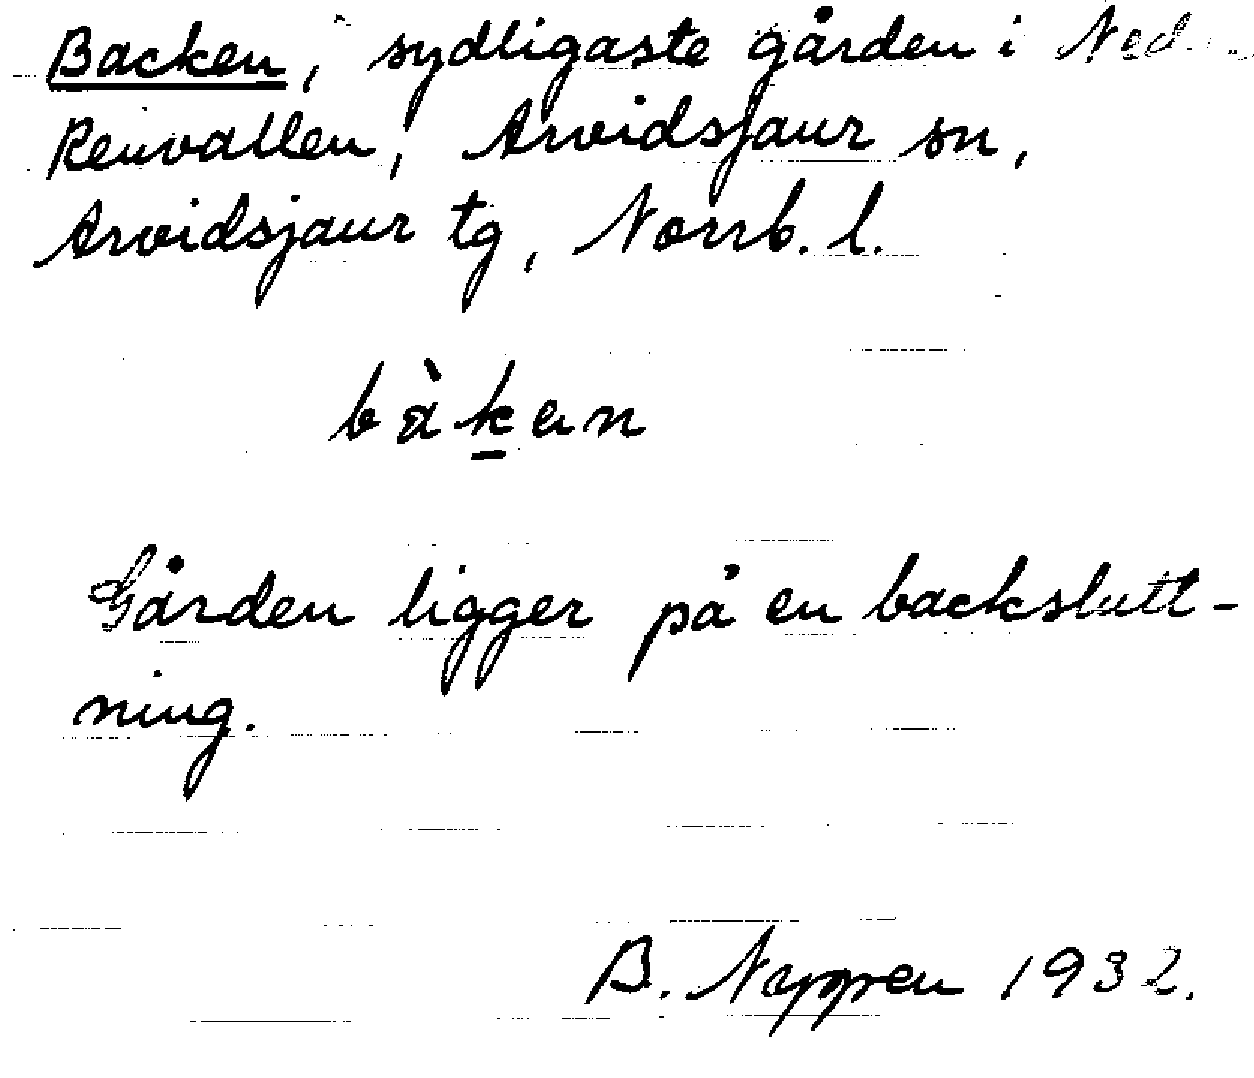 Backen, sydligaste gården i Ned.
Renvallen, Arvidsjaur sn,
Arvidsjaur tg, Norrb. l.
bàkan
Gården ligger på en backslutt-
ning.
B. 1932.